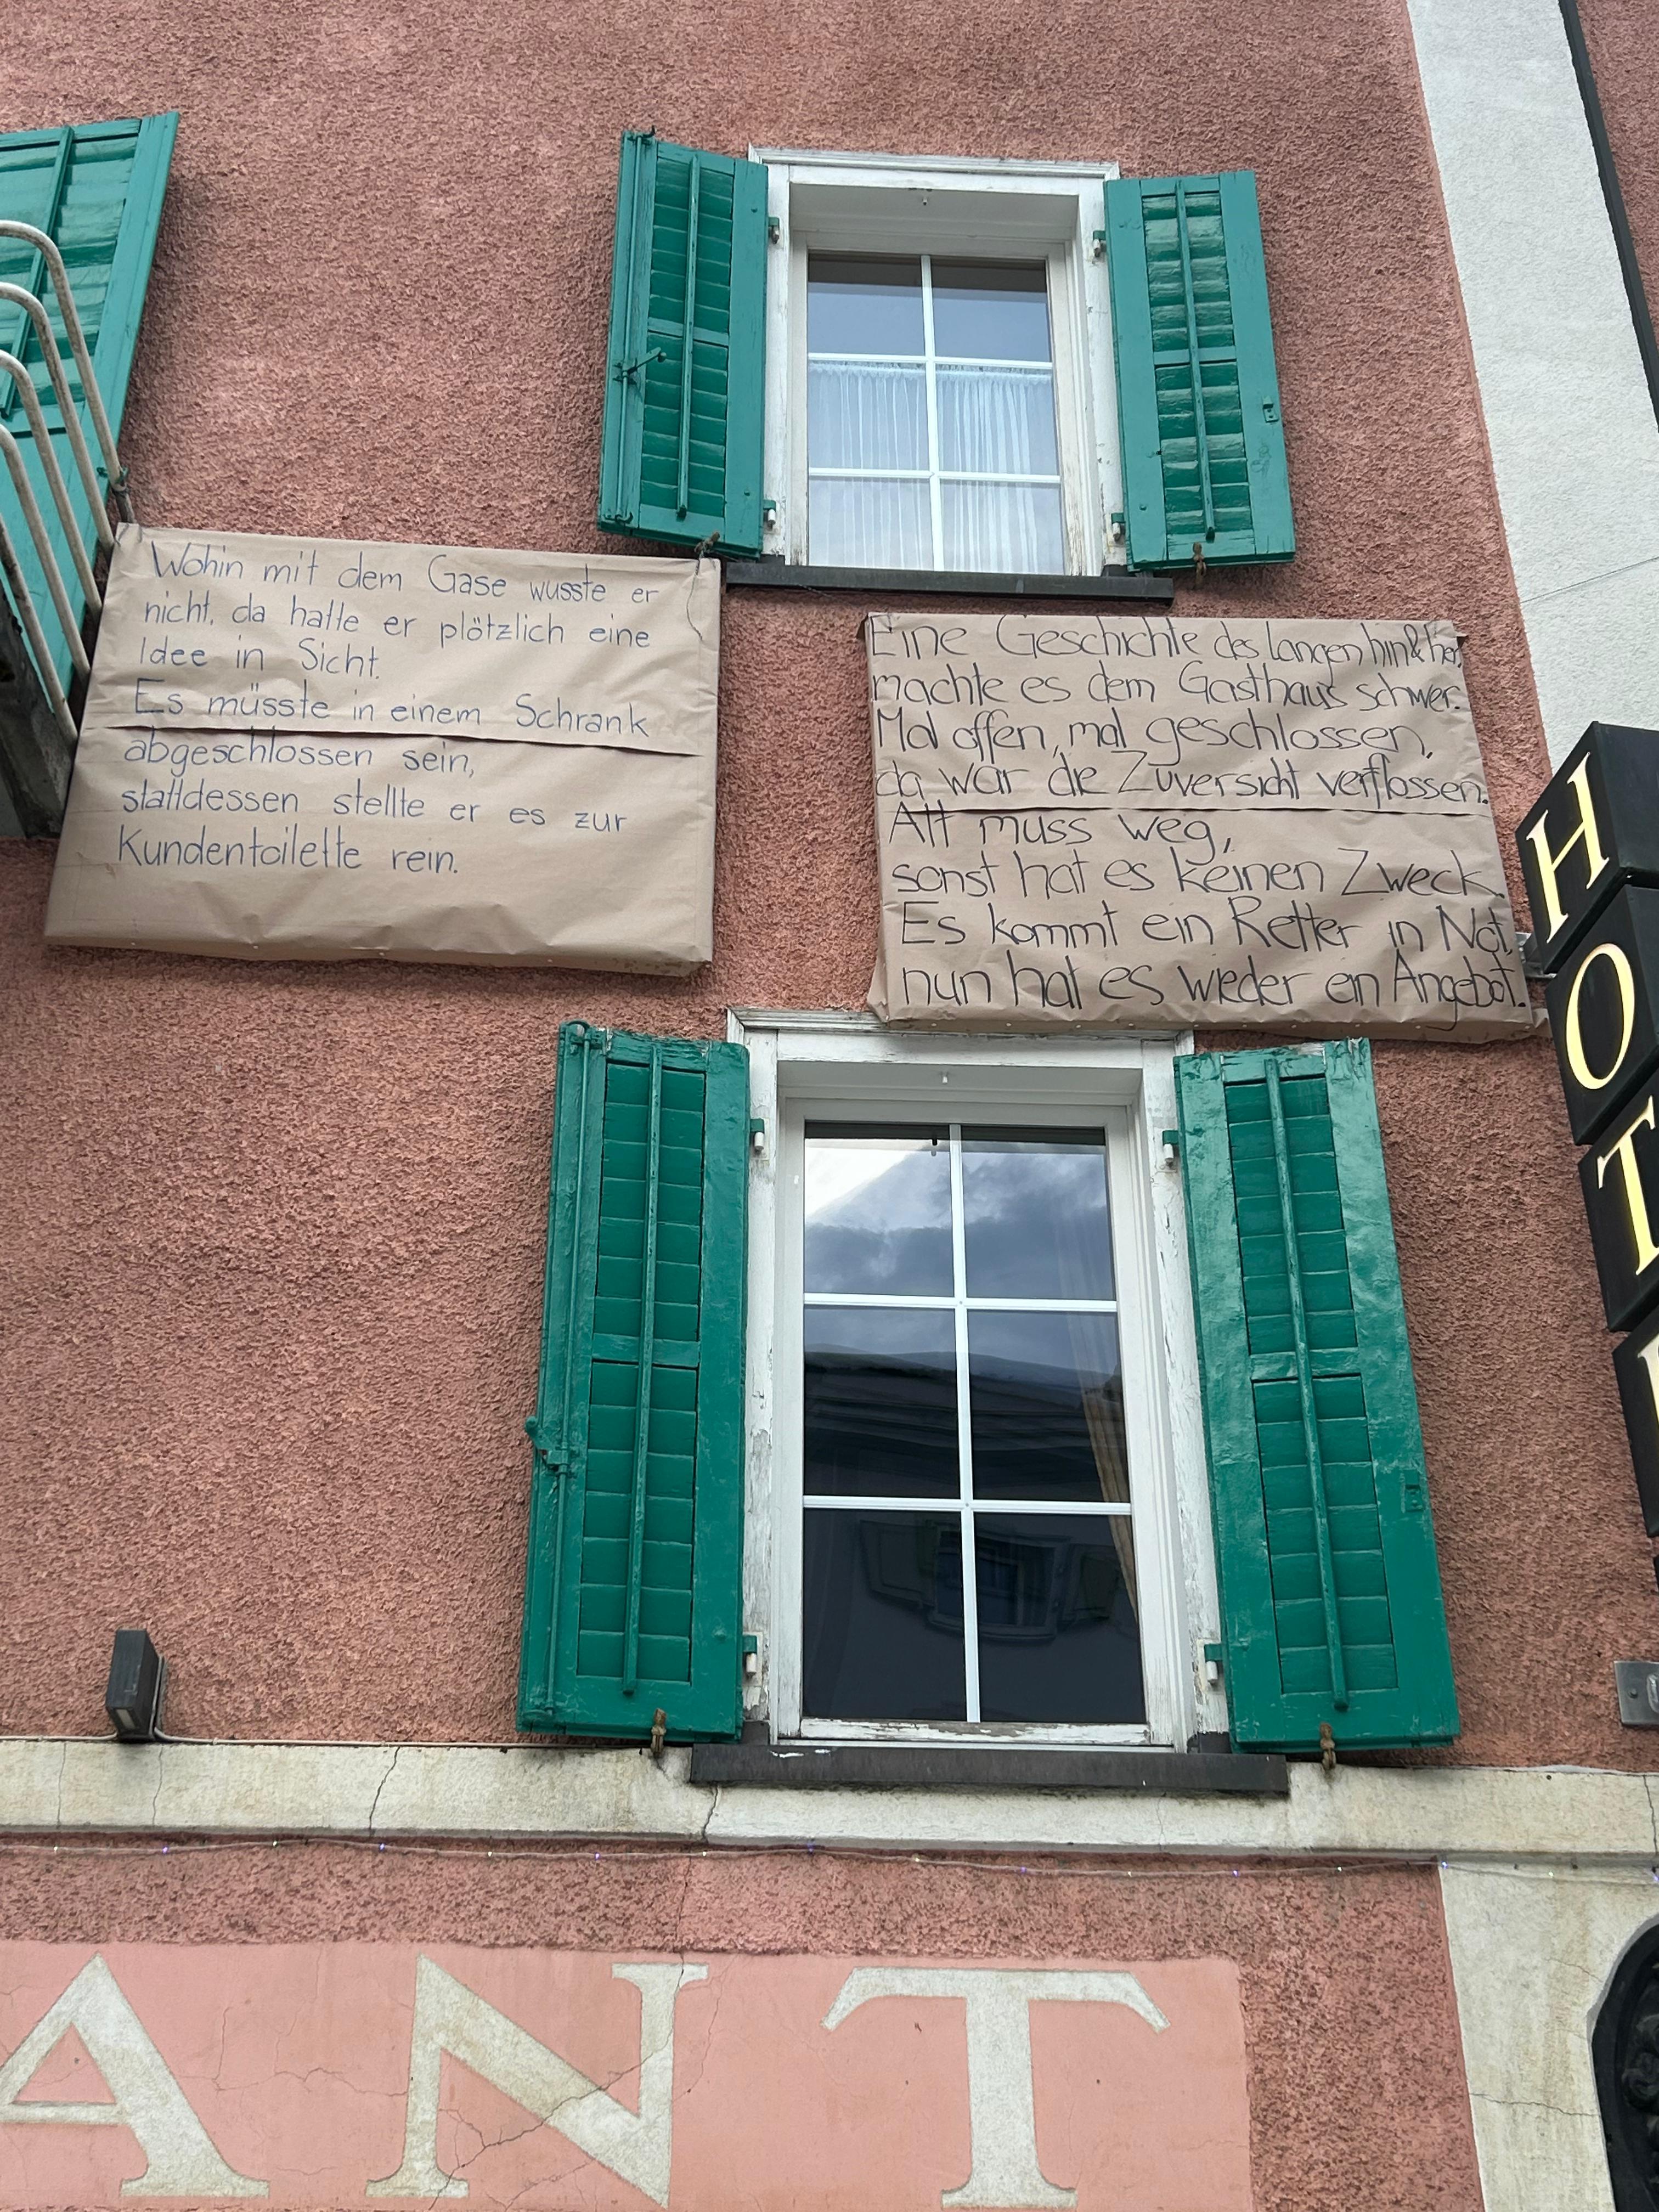 Wohin mit dem Gase wusste er
nicht, da hatte er plötzlich eine
Idee in Sicht.
Es müsste in einem Schrank
abgeschlossen sein,
stattdessen stellte er es zur
Kundentoilette rein.
Eine Geschichte des langen hin & her,
machte es dem Gasthaus schwer.
Mal offen, mal geschlossen,
da war die Zuversicht verflossen.
Alt muss weg,
sonst hat es keinen Zweck.
Es kommt ein Retter in Not,
nun hat es wieder ein Angebot.
HOT
ANT